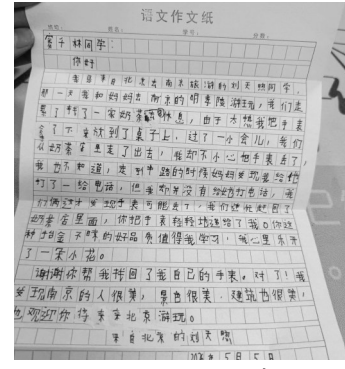 语文作文纸
同学:
你好!
我是来自北京去南京旅游的刘天照同学,
那一天我和妈妈去南京的明孝陵游玩,我们走
累了找了一家奶茶店休息,由于太热我把手表
拿了下来放到了桌子上,过了一小会儿,我们
从奶茶店里走了出去,我却不小心把手表丢了,
我也不知道,走到半路的时候妈妈发现我给她
打了一个电话,但我却并没有给她打电话,我
们俩这才发现手表可能丢了,我们连忙赶回了
奶茶店里面,你把手表轻轻地递给了我。你这
种拾金不昧的好品质值得我学习,我心里乐开
了一朵小花。
谢谢你帮我找回了我自己的手表。对了!我
发现南京的人很美,景色很美,建筑也很美,
也欢迎你将来来北京游玩。
来自北京的刘天照
5月5日